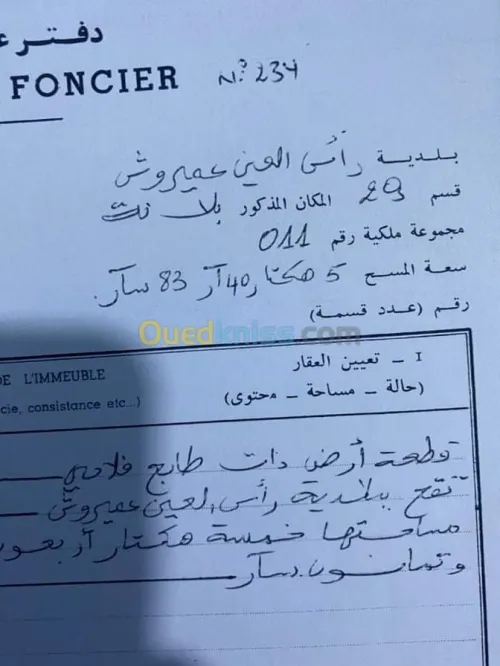 دفتر
FONCIER N° 234
بلدية رأس العين عميروش
قسم 29 المكان المذكور بلا
مجموعة ملكية رقم 011
سعة المسح 5 هكتار 40 آر 83 سآر
رقم (عدد قسمة)
Ouedkniss.com
DE L'IMMEUBLE
I – تعيين العقار
cie, consistance etc...)
(حالة – مساحة – محتوى)
قطعة أرض ذات طابع فلاحي
تقع ببلدية رأس العين عميروش
مساحتها خمسة هكتار أربعون
وثمانون سآر